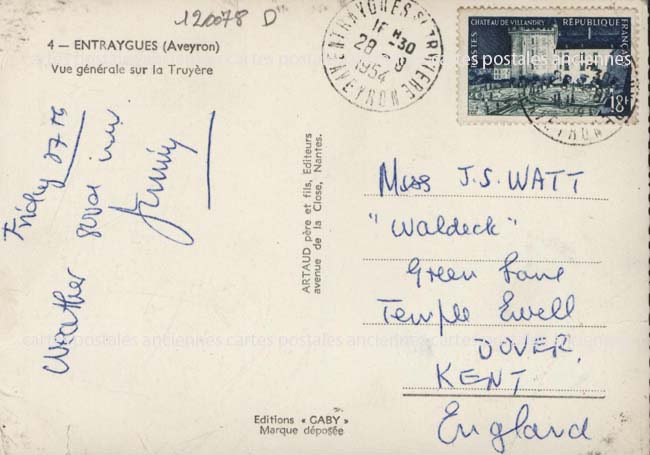 120078 D
4 — ENTRAYGUES (Aveyron)
Vue générale sur la Truyère
ENTRAYGUES S/ TRUYERE
1F H30
28 - 8
1954
AVEYRON
CHATEAU DE VILLANDRY
RÉPUBLIQUE FRANÇAISE
POSTES
18F
Friday 27th
Weather
Jimmy
ARTAUD père et fils, Editeurs
avenue de la Close, Nantes.
Miss J.S. WATT
"Waldeck"
Green Lane
Temple Ewell
DOVER,
KENT
England
cartes postales anciennes cartes postales anciennes cartes postales anciennes
Editions « GABY »
Marque déposée